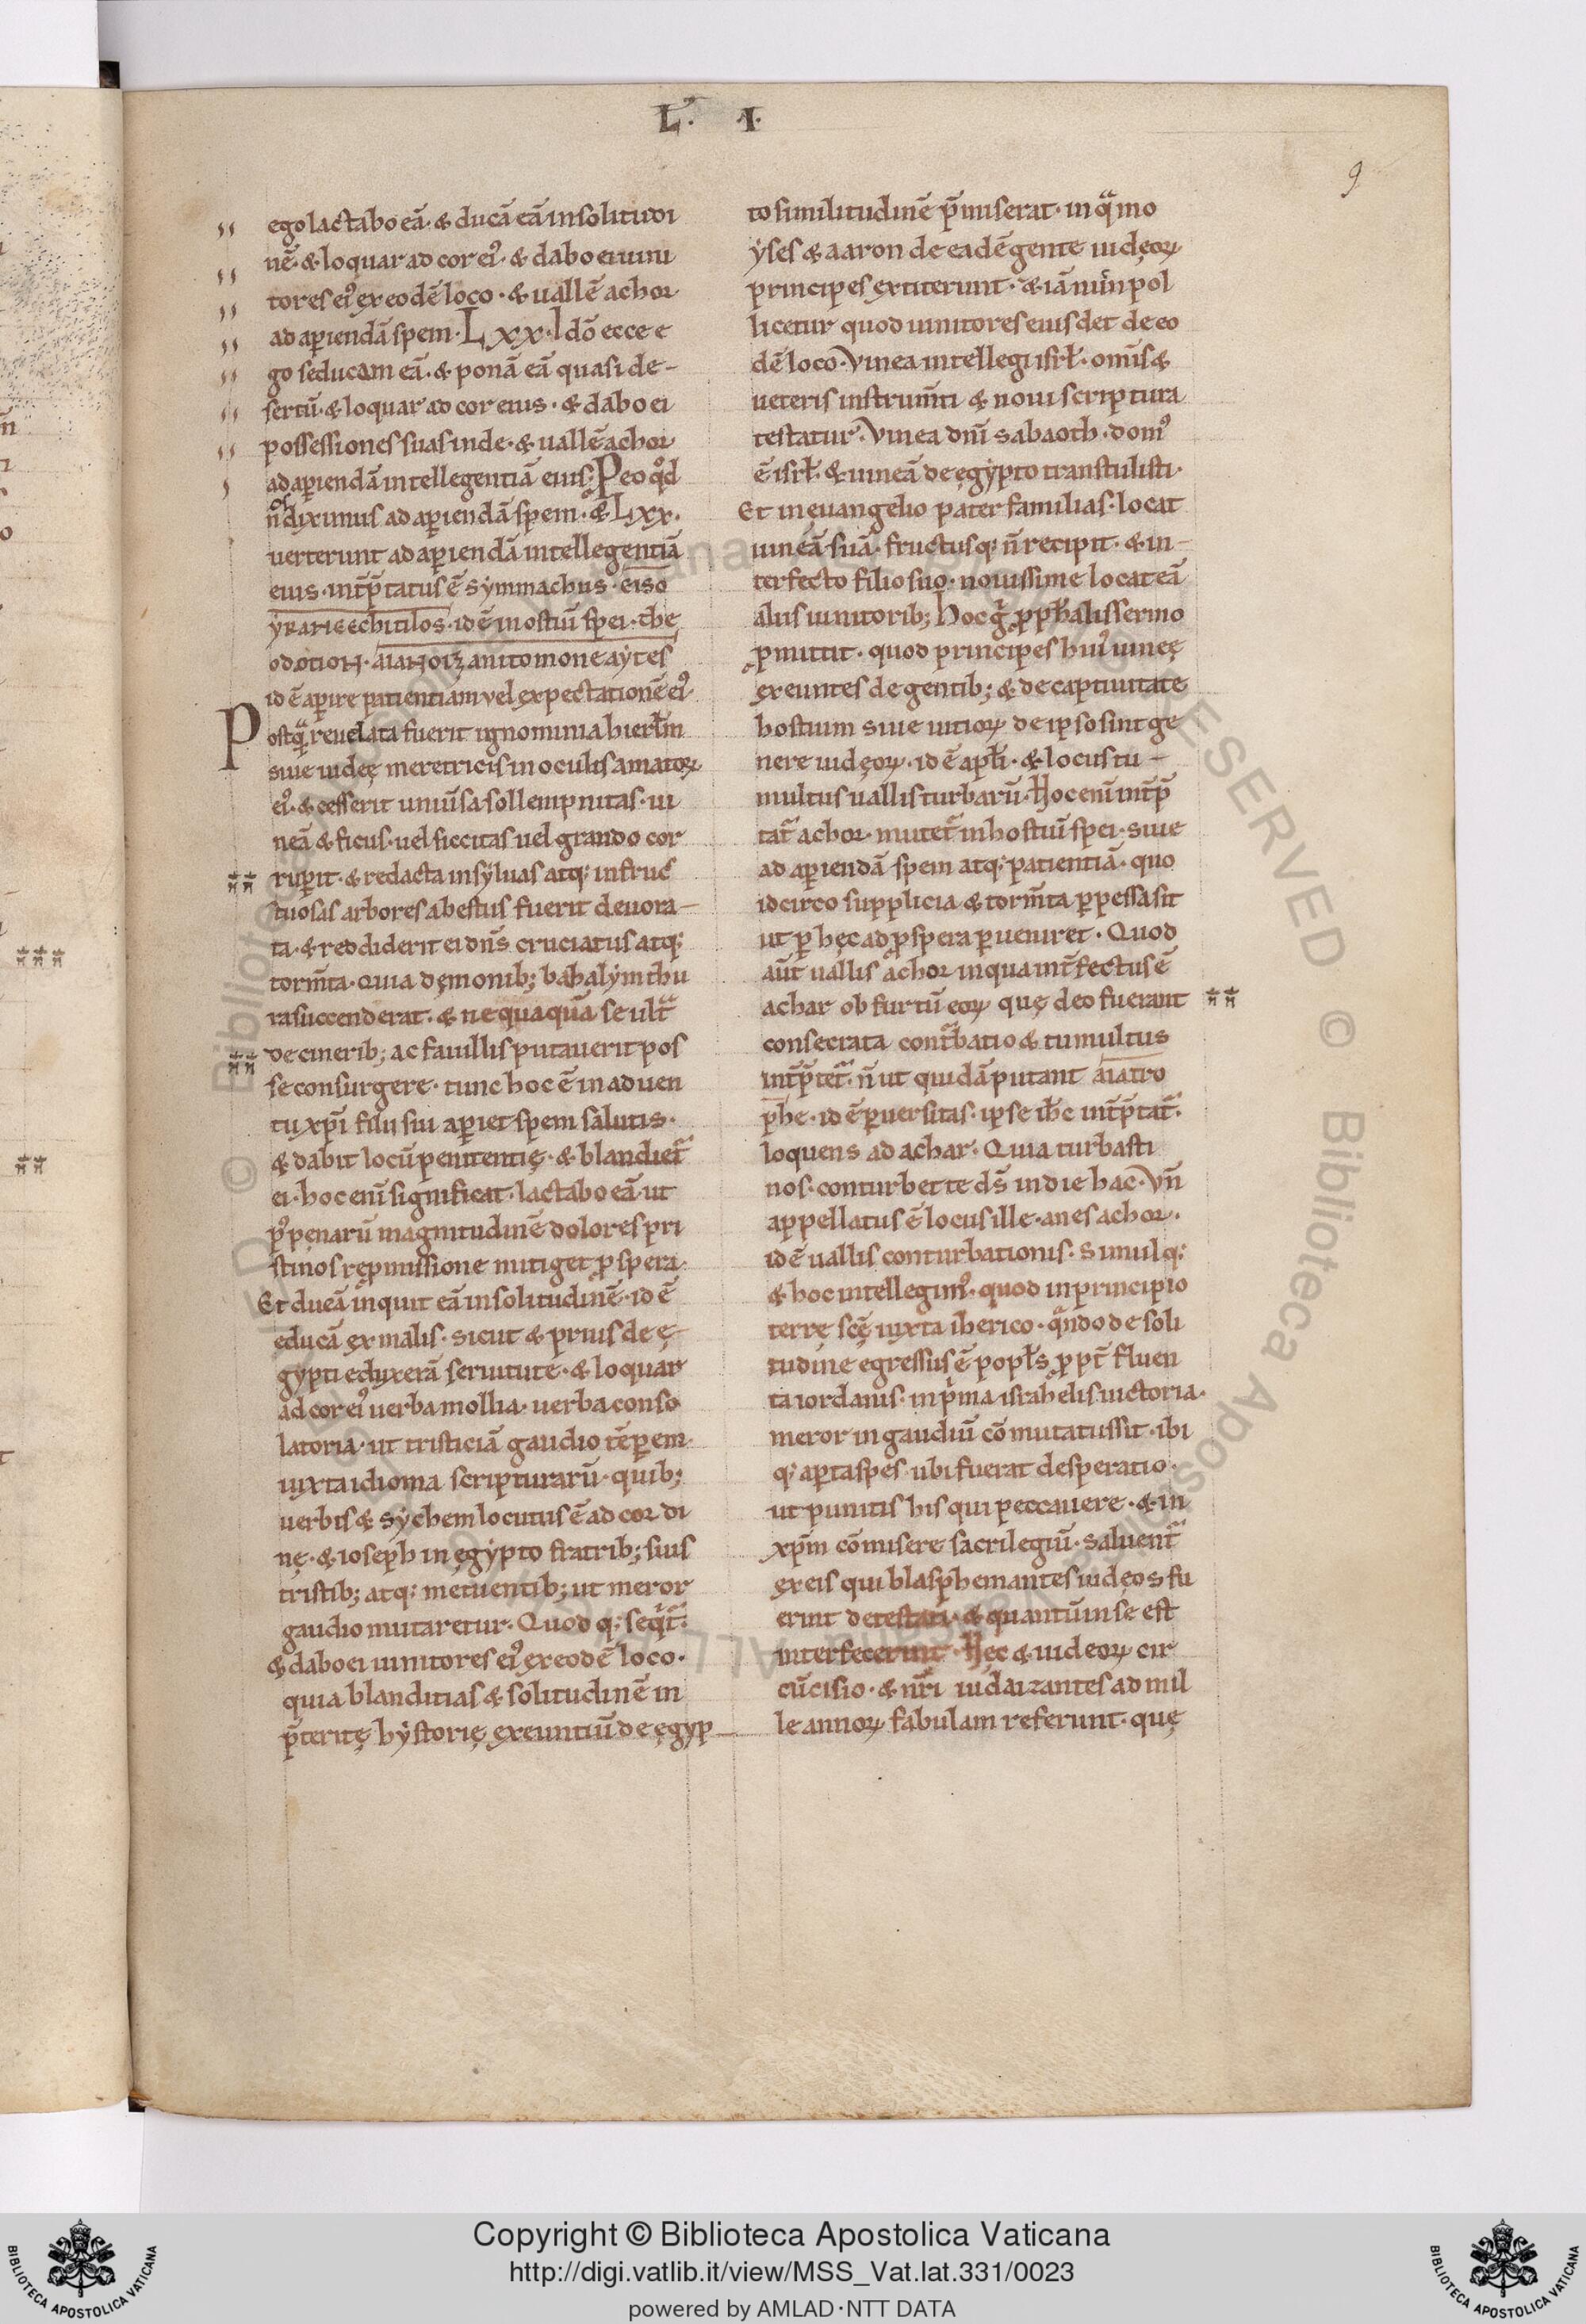 L. .I.
9
ego lactabo eā. & ducā eā in solitudi
nē. & loquar ad cor ei᾽. & dabo ei uini
tores ei᾽ ex eodē loco. & uallē achor
ad aperiendā spem. Lxx. Idō ecce e
go seducam eā. & ponā eā quasi de-
sertū. & loquar ad cor eius. & dabo ei
possessiones suas inde. & uallē achor
ad aperiendā intellegentiā eius. Peo qd
n dixim us ad aperiendā spem. & Lxx.
uerterunt ad aperiendā intellegentiā
eius. int̄p̄tatus ē symmachus. eiso
idē in ostiū spei. the
odotion.
id ē aperire patientiam vel expectationē ei᾽.
Postq̄ reuelata fuerit ignominia hierłm
siue iudeę meretricis in oculis amatoꝝ
ei᾽. & cesserit uniūsa sollempnitas. ui
neā & ficus. uel siccitas uel grando cor
ruperit. & redacta in syluas atq; infruc
tuosas arbores a bestiis fuerit deuora-
ta. & reddiderit ei dn̄s cruciatus atq;
torm̄ta. quia dęmonib; bahalym thu
ra succenderat. & nequaquā se ult̄
de cinerib; ac fauillis putauerit pos
se consurgere. tunc hoc ē in aduen
tu xp̄i filii sui aperiet spem salutis.
& dabit locū penitentię. & blandiet̄
ei. hoc enī significat. lactabo eā. ut
p᾽ penarū magnitudinē dolores pri
stinos repmissione mitiget ꝓspera.
Et ducā inquit eā in solitudinē. id ē
educā ex malis. sicut & prius de ę-
gypti eduxerā seruitute. & loquar
ad cor ei᾽ uerba mollia. uerba conso
latoria. ut tristiciā gaudio tēꝑem.
iuxta idioma scripturarū. quib;
uerbis & sychem locutus ē ad cor di
nę. & ioseph in ęgypto fratrib; suis
tristib; atq; metuentib; ut meror
gaudio mutaretur. Quod q; seq̄t̄.
& dabo ei uinitores ei᾽ ex eodē loco.
quia blanditias & solitudinē in
p̄teritę hystorię exeuntiū de ęgyp
to similitudinē p̄miserat. in q̄ mo
yses & aaron de eadē gente iudęoꝝ
principes extiterunt. & iā nunc pol
licetur quod uinitores eius det de eo
dē loco. Vinea intellegi isrł. omīs &
ueteris instrum̄ti & noui scriptura
testatur. Vinea dn̄i sabaoth. dom᾽
ē isrł. & uineā de ęgypto transtulisti.
Et in euangelio pater familias. locat
uineā suā. fructusq; n̄ recipit. & in-
terfecto filio suo. nouissime locat eā
aliis uinitorib; Hoc g ꝓphałis sermo
ꝓmittit. quod principes hui᾽ uineę
exeuntes de gentib; & de captiuitate
hostium siue uitioꝝ de ipso sint ge
nere iudęoꝝ. id ē apłi. & locus tu-
multus uallis turbarū. Hoc enī int̄p̄
tat̄ achor. mutet̄ in hostiū spei. siue
ad aperiendā spem atq; patientiā. quo
idcirco supplicia & torm̄ta ꝑpessa sit
ut ꝑ hęc ad ꝓspera ꝑueniret. Quod
aūt uallis achor in qua int̄fectus ē
achar ob furtū eoꝝ quę deo fuerant
consecrata cont̄batio & tumultus
int̄p̄tet̄. n̄ ut quidā putant
id ē ꝑuersitas. ipse ih̄c int̄p̄tat̄.
loquens ad achar. Quia turbasti
nos. conturbet te ds̄ in die hac. Vn̄
appellatus ē locus ille. anes achor.
id ē uallis conturbationis. Simulq;
& hoc intellegim᾽. quod in principio
terrę scę̄ iuxta iherico. q̄ndo de soli
tudine egressus ē popłs ꝓpt̄ fluen
ta iordanis. in p̄ma israhelis uictoria.
meror in gaudiū cōmutatus sit. ibi
q; aperta spes ubi fuerat desperatio.
ut punitis his qui peccauere. & in
xp̄m cōmisere sacrilegiū. saluent̄
ex eis qui blasphemantes iudęos fu
erint detestati. & quantū in se est
interfecerunt. Hęc & iudeoꝝ cir
cūcisio. & nr̄i iudaizantes ad mil
le annoꝝ fabulam referunt. quę
© Biblioteca Apostolica Vaticana
ALL RIGHTS RESERVED
Copyright © Biblioteca Apostolica Vaticana
http://digi.vatlib.it/view/MSS_Vat.lat.331/0023
powered by AMLAD·NTT DATA
BIBLIOTECA APOSTOLICA VATICANA
BIBLIOTECA APOSTOLICA VATICANA